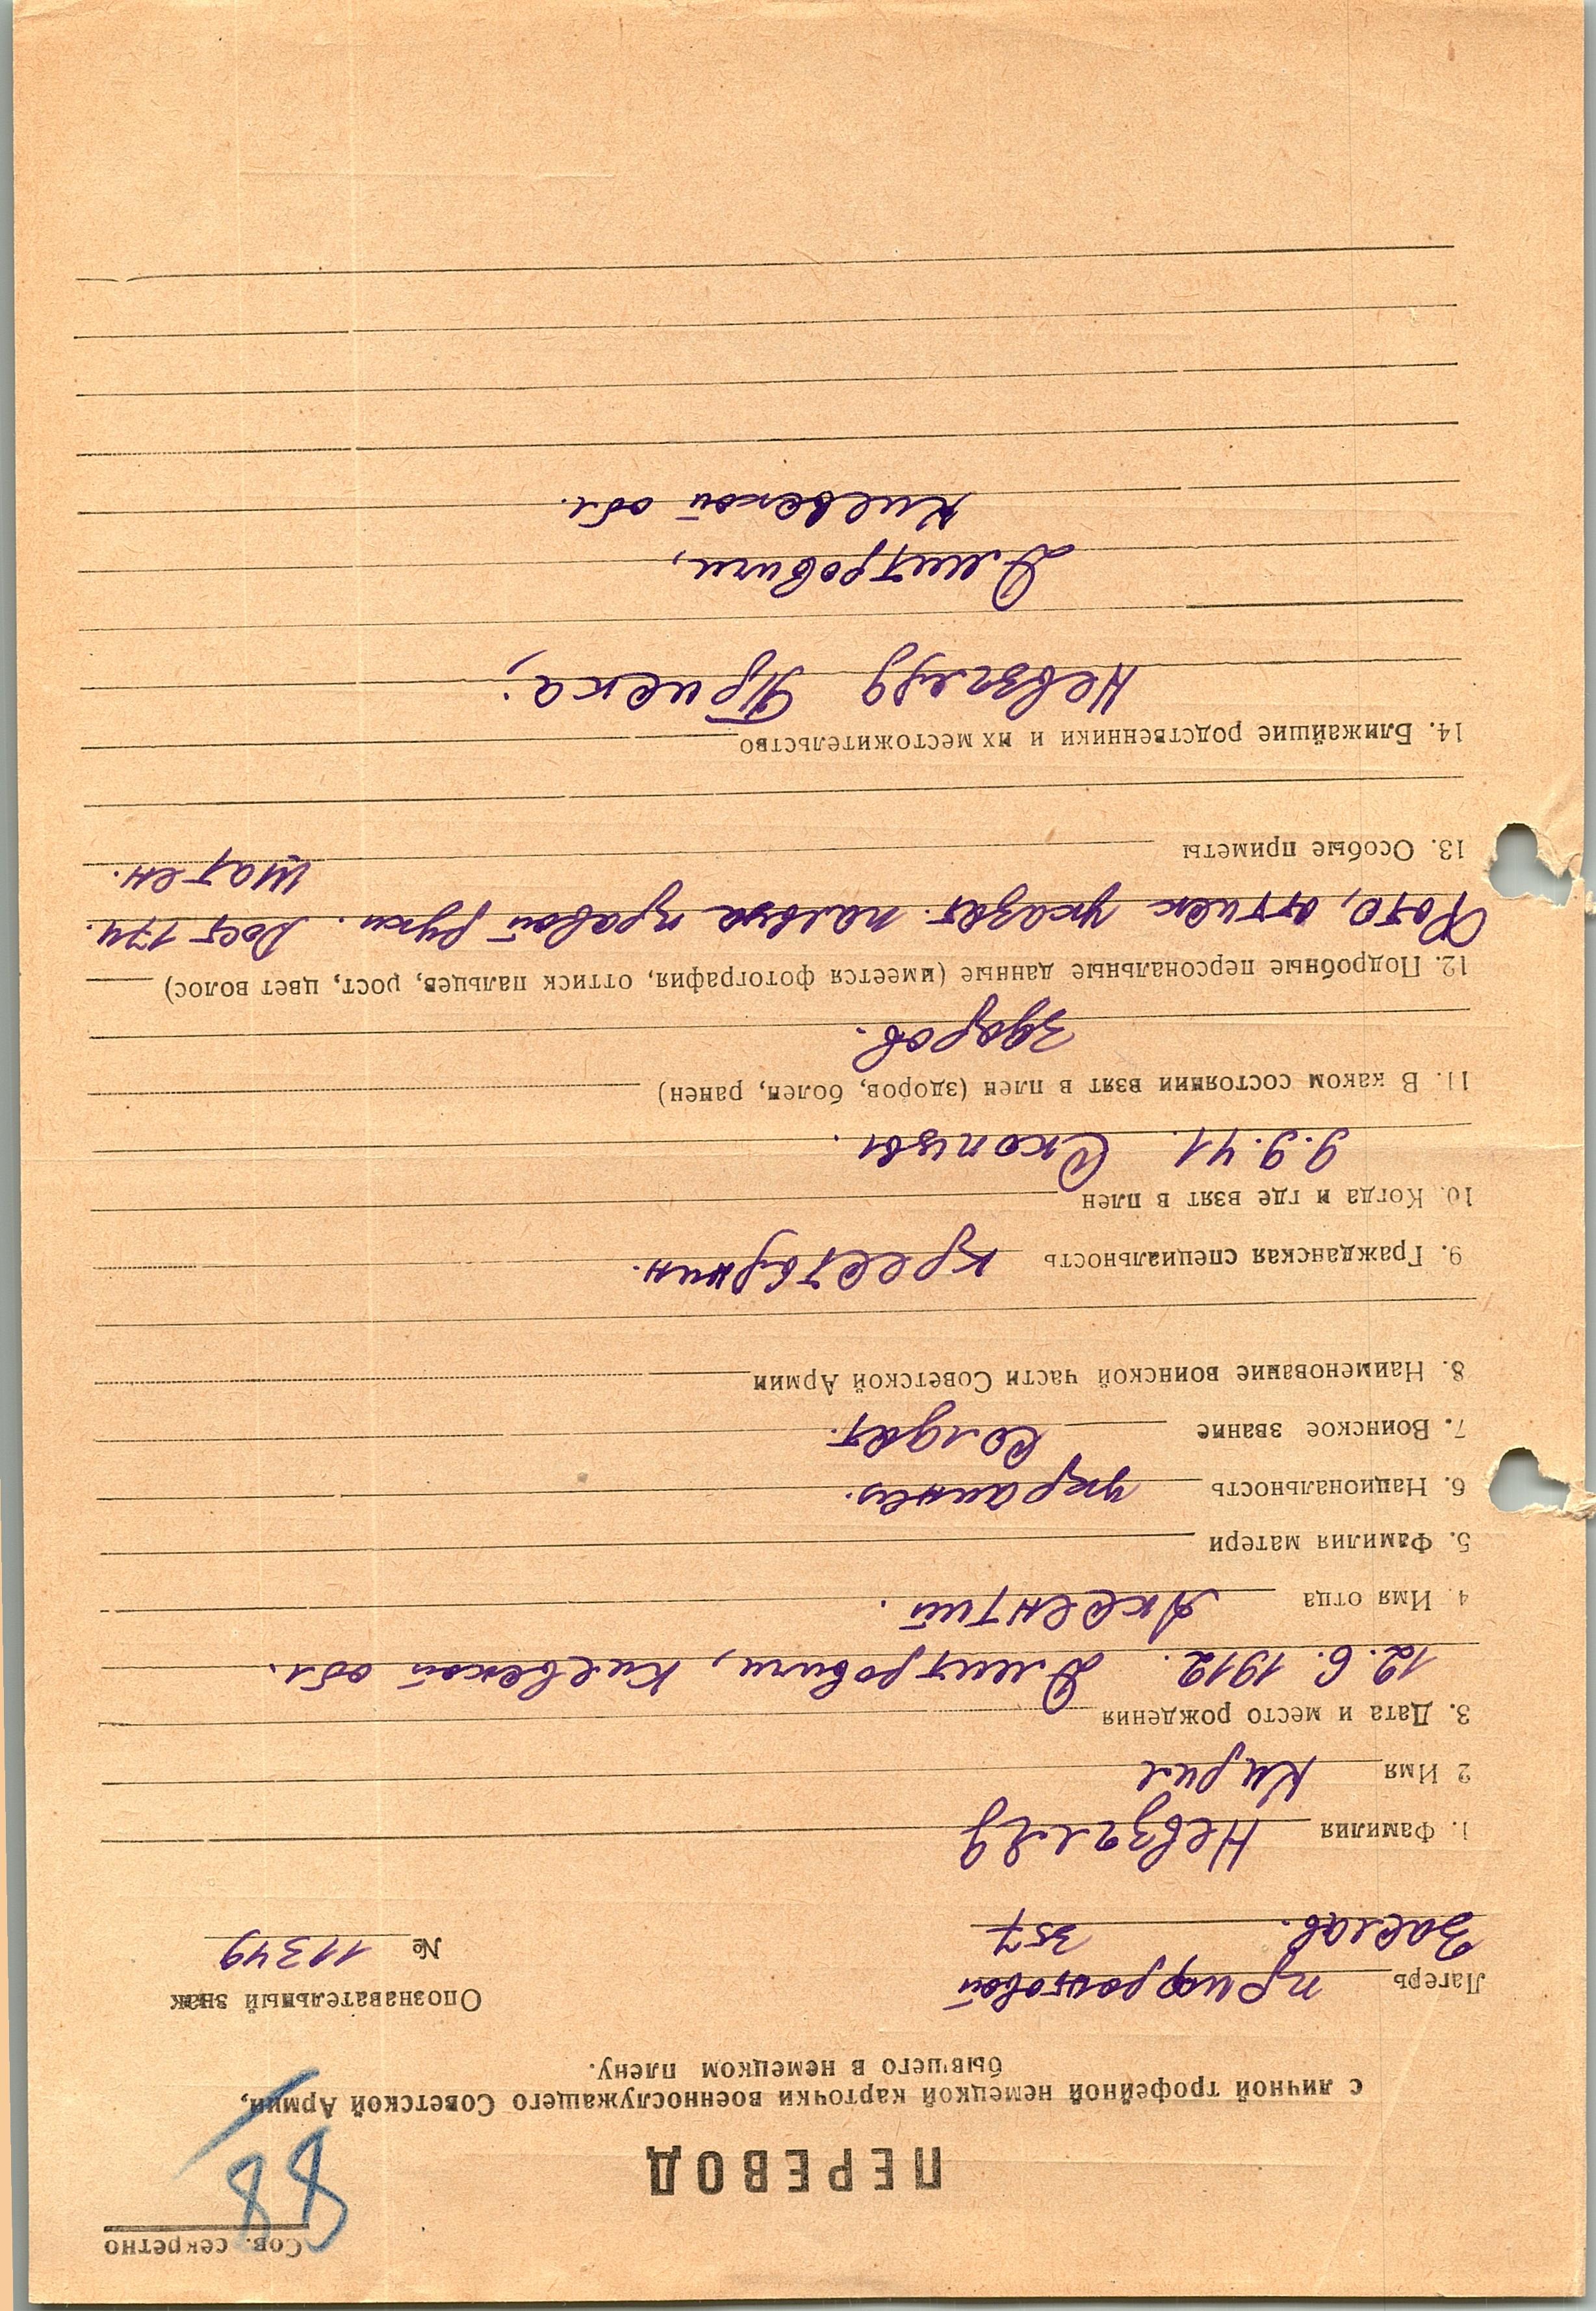 Сов. секретно
88
ПЕРЕВОД
с личной трофейной немецкой карточки военнослужащего Советской Армии,
бывшего в немецком плену.
Лагерь прифронтовой
Заслав. 357
Опознавательный знак
№ 11349
1. Фамилия Невзгляд
2 Имя Кирил
3. Дата и место рождения
12.6.1912. Дмитровичи, Киевской обл.
4. Имя отца Аксентий.
5. Фамилия матери
6. Национальность украинец.
7. Воинское звание Солдат.
8. Наименование воинской части Советской Армии
9. Гражданская специальность крестьянин.
10. Когда и где взят в плен
9.9.41. Скопцы.
11. В каком состоянии взят в плен (здоров, болен, ранен)
здоров.
12. Подробные персональные данные (имеется фотография, оттиск пальцев, рост, цвет волос)
Фото, оттиск указат. пальца правой руки. Рост 174.
шатен.
13. Особые приметы
14. Ближайшие родственники и их местожительство
Невзгляд
Дмитровичи,
Киевской обл.